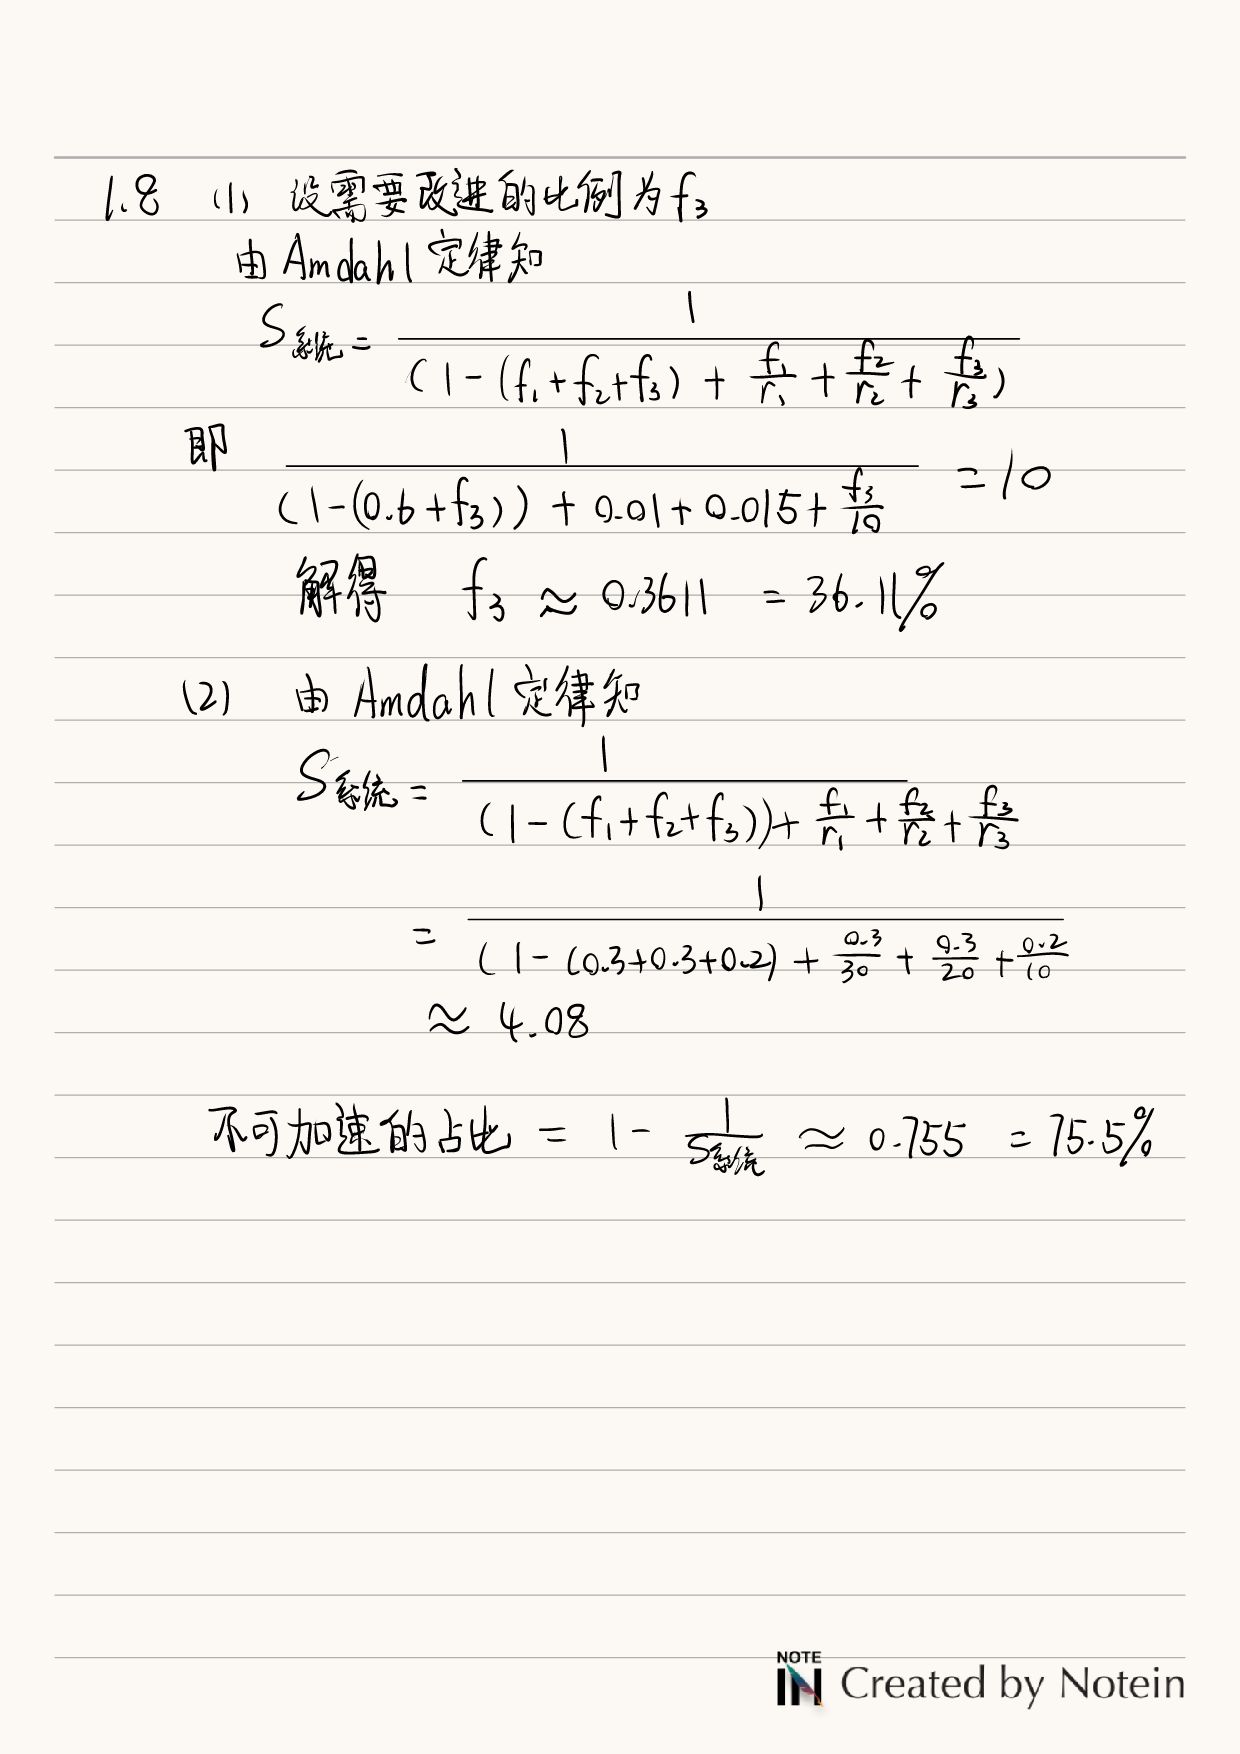 1.8 (1) 设需要改进的比例为f₃
由Amdahl定律知
S系统 = 1/((1-(f₁+f₂+f₃) + f₁/r₁ + f₂/r₂ + f₃/r₃)
即 1/((1-(0.6+f₃)) + 0.01+0.015+ f₃/10) = 10
解得 f₃ ≈ 0.3611 = 36.11%
(2) 由Amdahl定律知
S系统 = 1/((1-(f₁+f₂+f₃))+ f₁/r₁ + f₂/r₂ + f₃/r₃)
= 1/((1-(0.3+0.3+0.2) + 0.3/30 + 0.3/20 + 0.2/10)
≈ 4.08
不可加速的占比 = 1- 1/S系统 ≈ 0.755 = 75.5%
NOTE
IN Created by Notein